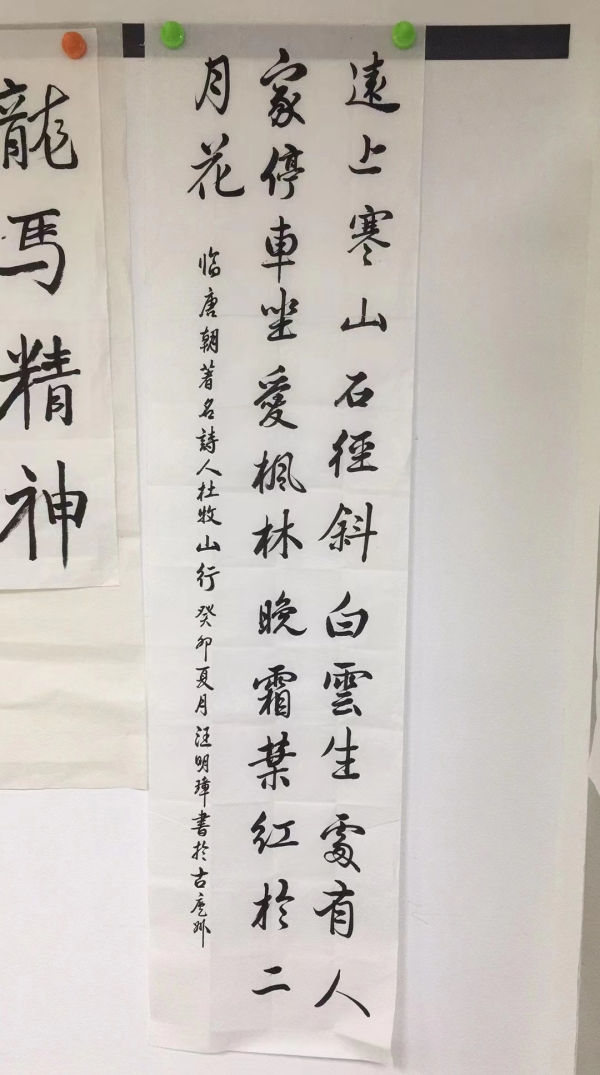 遠上寒山石徑斜白雲生處有人
家停車坐愛楓林晚霜葉紅於二
月花
臨唐朝著名詩人杜牧山行癸卯夏月汪明璋書於古廬州
龍馬精神